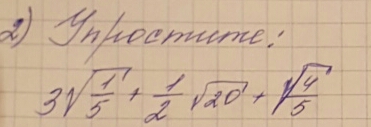 2) Упростите:
3√(1/5) + 1/2 √20 + √(4/5)